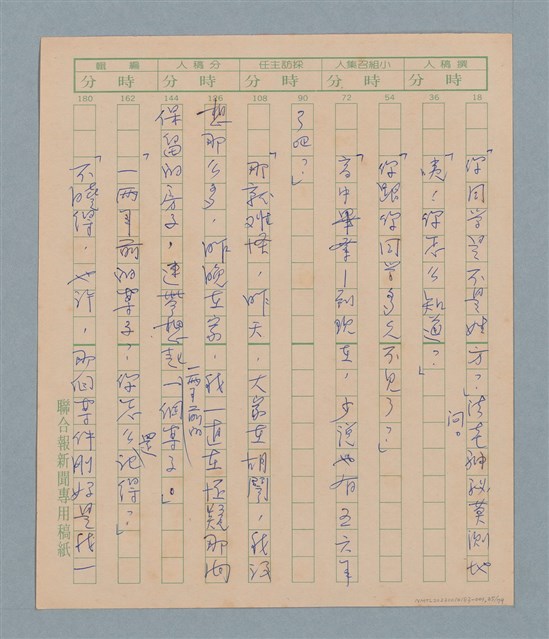 撰稿人 小組召集人 採訪主任 分稿人 編輯
時 分 時 分 時 分 時 分
18 36 54 72 90 108 126 144 162 180
「你同學是不是姓方？」法老神祕莫測地問。
「咦！你怎么知道？」
「你跟你同學多久不見了？」
「高中畢業－到現在，少說也有五六年
了吧？」
「那就难怪，昨天，大家在胡鬧，我沒
想那么多，昨晚在家，我一直在怀疑那间
保留的房子，連帶想起一两年前的一個案子。」
「一两年前的案子？你怎么还記得？」
「不曉得，也许，那個案件剛好是我一
聯合報新聞專用稿紙